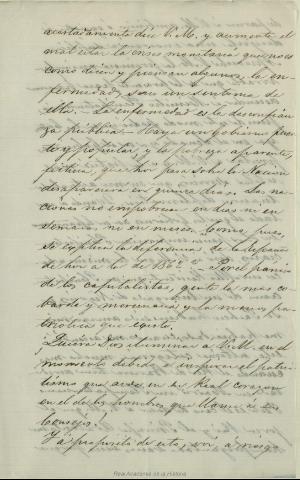 acertadamente dice V. M. y aumenta el
mal estar la crisis monetaria que no es
como dicen y piensan algunos, la en-
fermedad, sino un síntoma de
ella. La enfermedad es la desconfian
za pública. Haya un gobierno fuer
te y popular, y la pobreza aparente,
ficticia, que hoy pesa sobre la Nación
desaparecerá en quince días. Las na
ciones no empobrecen en días ni en
semanas, ni en meses. Como pues,
se explica la diferencia de la España
de hoy a la de 1862? Por el pánico
de los capitalistas, gente la mas co
barde y la menos pa
triótica que existe.
¡Quiera Dios iluminar a V. M. en el
momento debido e inspirar el patrio
tismo que arde en su Real corazon
en el de los hombres que llame a sus
Consejos!
Y a proposito de esto, voy a
Real Academia de la Historia